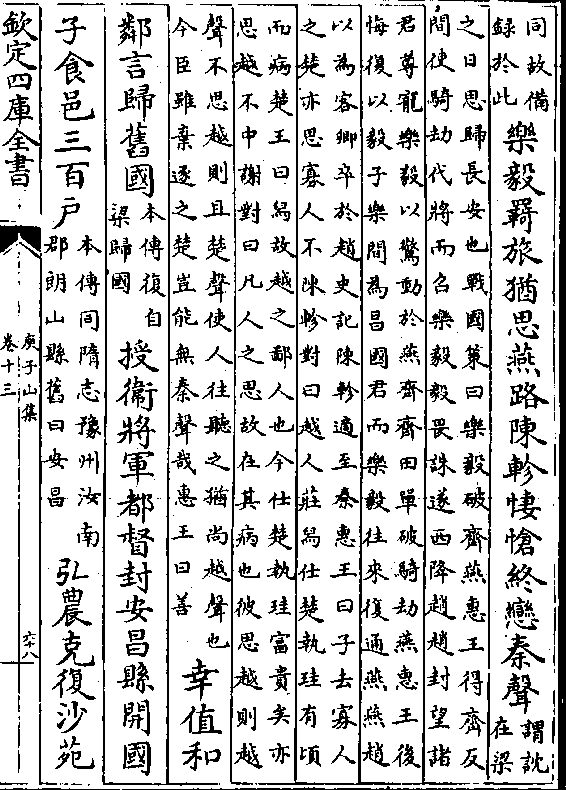 同故備
録於此
樂毅羇旅猶思燕路陳軫悽愴終戀秦聲
謂説
在梁
之日思歸長安也戰國策曰樂毅破齊燕惠王得齊反
間使騎劫代將而召樂毅毅畏誅遂西降趙趙封望諸
君尊寵樂毅以驚動於燕齊齊田單破騎劫燕惠王後
悔復以毅子樂間為昌國君而樂毅往來復通燕燕趙
以為客卿卒於趙史記陳軫適至秦惠王曰子去寡人
之楚亦思寡人不陳軫對曰越人莊舄仕楚執珪有頃
而病楚王曰舄故越之鄙人也今仕楚執珪富貴矣亦
思越不中謝對曰凡人之思故在其病也彼思越則越
聲不思越則且楚聲使人往聽之猶尚越聲也
今臣雖棄逐之楚豈能無秦聲哉惠王曰善
幸值和
鄰言歸舊國
本傳復自
梁歸國
授衛將軍都督封安昌縣開國
子食邑三百户
本傳同隋志豫州汝南
郡朗山縣舊曰安昌
弘農克復沙苑
欽定四庫全書
庾子山集
卷十三
六八